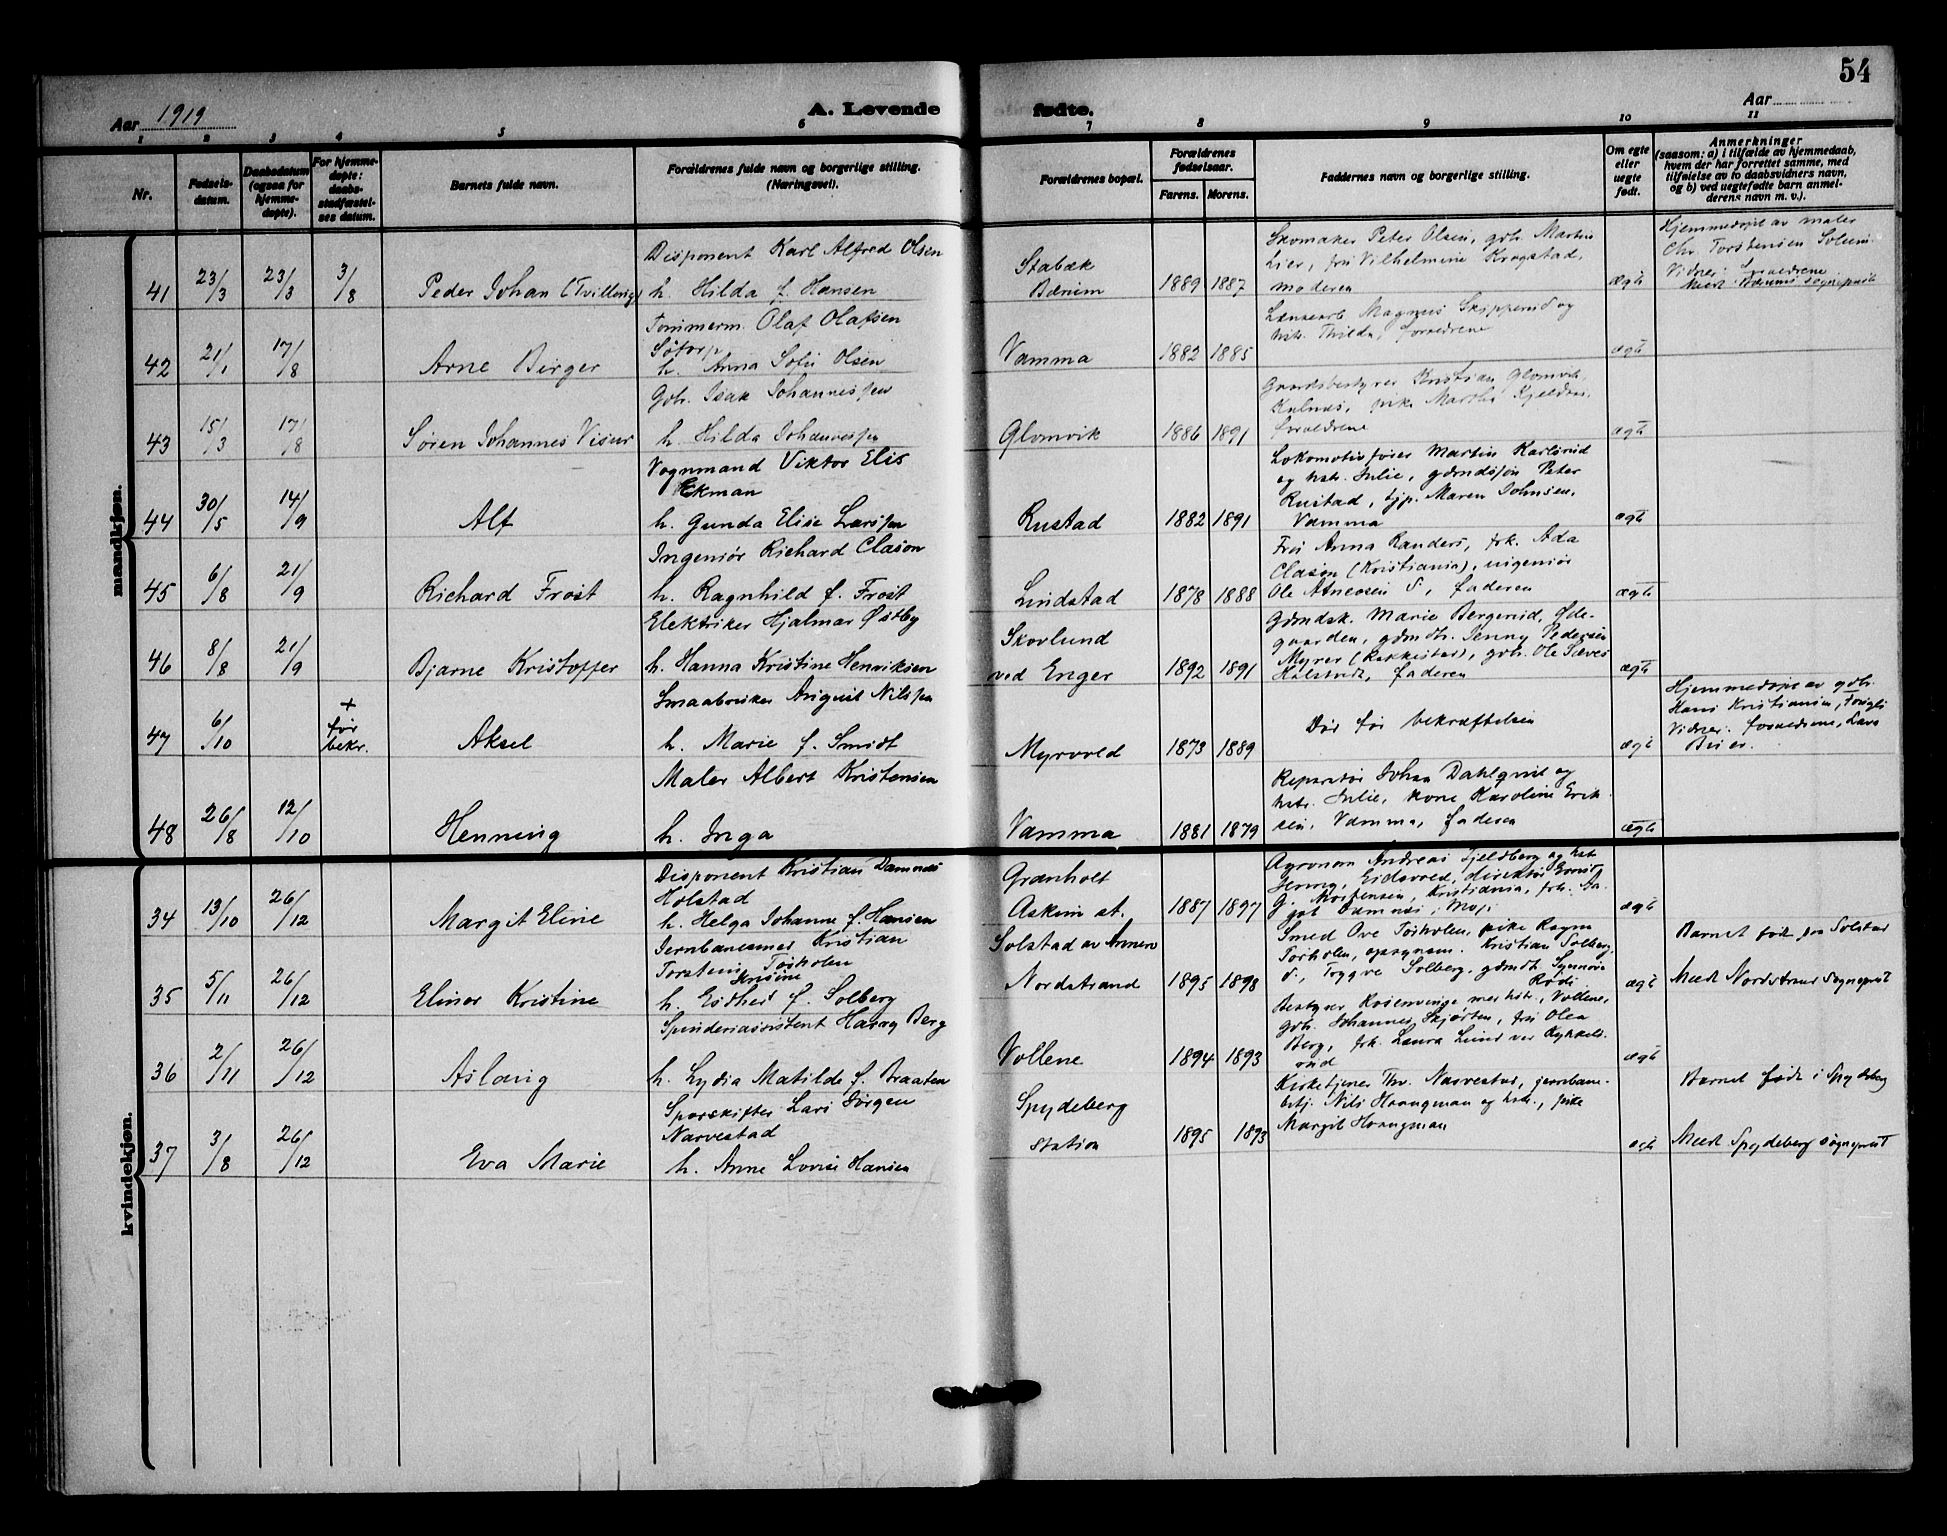 54
Aar 1919
A. Levende
fødte.
Aar
1 2 3 4 5 6 7 8 9 10 11
Nr.
Fødsels-
datum.
Daabsdatum
(ogsaa for
hjemme-
døpte).
For hjemme-
døpte:
daabs-
stadfæstel-
ses datum.
Barnets fulde navn.
Forældrenes fulde navn og borgerlige stilling.
(Næringsvei).
Forældrenes bopæl.
Forældrenes
fødselsaar.
Farens. Morens.
Faddernes navn og borgerlige stilling.
Om egte
eller
uegte
født.
Anmerkninger
(saasom: a) i tilfælde av hjemmedaab,
hvem der har forrettet samme, med
tilføielse av to daabsvidners navn,
og b) ved uegtefødte barn anmel-
derens navn m. v.).
mandkjøn.
41 23/3 23/3 3/8
Peder Johan (Tvilling)
Disponent Karl Alfred Olsen
h. Hilda f. Hansen
Stabæk
Bærum
1889 1887
Skomaker Peter Olsen, gbr. Martin
Lier, fru Vilhelmine Krogstad,
moderen
ægte
Hjemmedøpt av maler
Chr. Torstensen Solum.
Vidner: forældrene
Medt Bærums sogneprest
42 21/1 17/8
Arne Birger
Tømmerm. Olaf Olafsen
Søtorp
h. Anna Sofie Olsen
Vamma
1882 1885
Magnus Skipperud og
hstr. Thilda, forældrene
ægte
43 15/3 17/8
Søren Johannes Visur
Gbr. Isak Johannessen
h. Hilda Johannessen
Glomvik
1886 1891
Gaardsbestyrer Kristian Glomvik,
pike Martha
forældrene
ægte
44 30/5 14/9
Alf
Vognmand Viktor Elis
Ekman
h. Gunda Elise Larssen
Rustad
1882 1891
Lokomotivfører Martin Karlsrud
og hstr. Julie, gaardssøn Peter
Rustad, tjp. Maren Johnsen,
Vamma
ægte
45 6/8 21/9
Richard Frost
Ingeniør Richard Clason
h. Ragnhild f. Frost
Lindstad
1878 1888
Fru Anna Randers, frk. Ada
Clason (Kristiania), ingeniør
Ole, faderen
ægte
46 8/8 21/9
Bjarne Kristoffer
Elektriker Hjalmar Østby
h. Hanna Kristine Henriksen
Skovlund
ved Enger
1892 1891
Gaardsk. Marie Bergerud, Øde-
gaarden, gaardbr. Jenny Pedersen
Myrer (Rakkestad), gbr. Ole
faderen
ægte
47 6/10
+
før
bekr.
Aksel
Smaabruker August Nilssen
h. Marie f. Smidt
Myrvold
1873 1889
Død før bekræftelsen
ægte
Hjemmedøpt av gbr.
Hans Kristiansen,
Vidner: forældrene, Lars
Beier.
48 26/8 12/10
Henning
Maler Albert Kristensen
h. Inga
Vamma
1881 1879
Reparatør Johan Dahlqvist og
hstr. Julie, kone Karoline Erik-
sen, Vamma, faderen
ægte
kvindekjøn.
34 13/10 26/12
Margit Eline
Disponent Kristian Damnæs
Holstad
h. Helga Johanne f. Hansen
Granholt
Askim st.
1887 1897
Agronom Andreas Fjeldberg og hstr.
Jenny, Eidsvold, direktør Ernst
G. Mortensen, Kristiania, frk. Aa-
got Damnæs i Moss
ægte
35 5/11 26/12
Elinor Kristine
Jernbanesmed Kristian
Torstens Torholen
Kristine
h. Esther f. Solberg
Solstad av Annen
Nordstrand
1895 1898
Smed Ove Torholen, pike Ragna
Torholen, opsynsm. Kristian Solberg,
S., Trygve Solberg, gaardbr. Synnøve
Rødi
ægte
Barnet født paa Solstad
Meldt Nordstrand Sogneprest
36 2/11 26/12
Aslaug
Spinderiassistent Harry Berg
h. Lydia Matilde f. Braaten
Vollene
1894 1893
Bestyrer Rosenvinge med hstr., Vollene,
gbr. Johannes Skjørten, fru Olea
Berg, frk. Laura Lund ved Kykkels-
rud
ægte
37 3/8 26/12
Eva Marie
Sporskifter Lars Jørgen
Narvestad
h. Anne Lovise Hansen
Spydeberg
station
1895 1893
Kirketjener Thv. Narvestad, jernbane-
betj. Nils Haugman og hstr., pike
Margit Haugman
ægte
Barnet født i Spydeberg
Meldt Spydeberg sogneprest